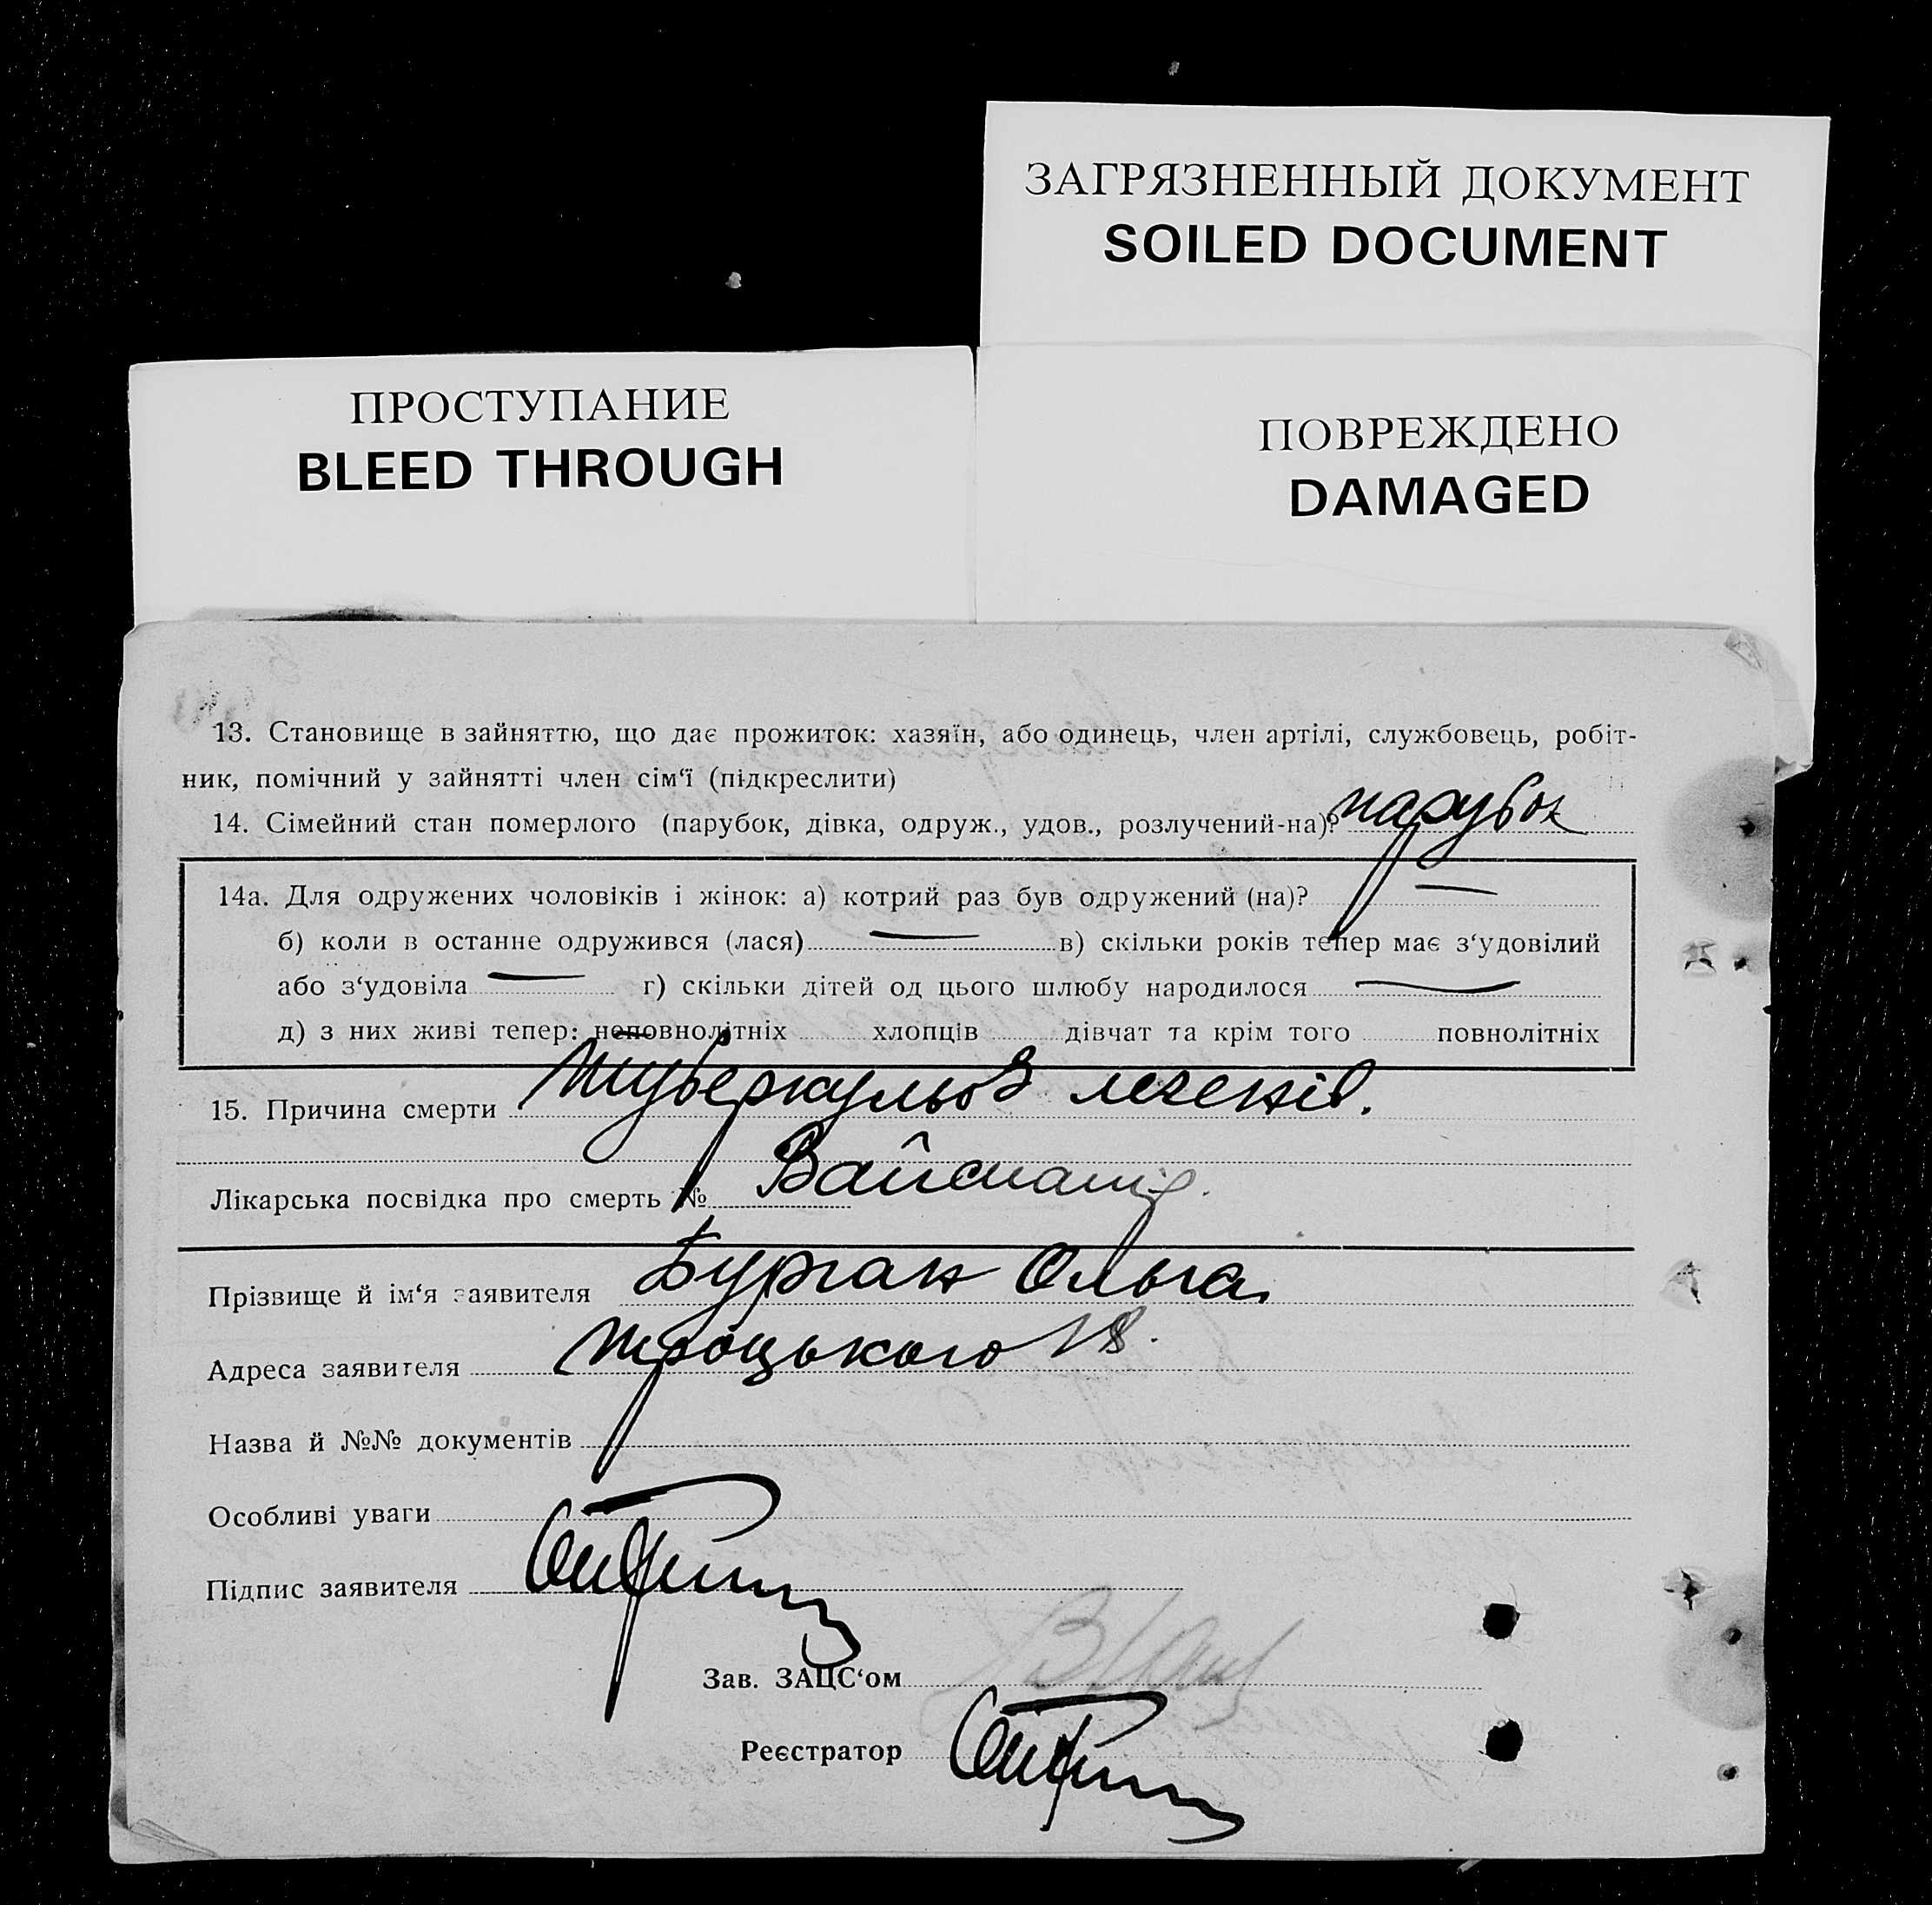 ЗАГРЯЗНЕННЫЙ ДОКУМЕНТ
SOILED DOCUMENT
ПРОСТУПАНИЕ
BLEED THROUGH
ПОВРЕЖДЕНО
DAMAGED
13. Становище в зайняттю, що дає прожиток: хазяїн, або одинець, член артілі, службовець, робіт-
ник, помічний у зайнятті член сім‘ї (підкреслити)
14. Сімейний стан померлого (парубок, дівка, одруж., удов., розлучений-на)? парубок
14а. Для одружених чоловіків і жінок: а) котрий раз був одружений (на)? —
б) коли в останнє одружився (лася) — в) скільки років тепер має з‘удовілий
або з‘удовіла — г) скільки дітей од цього шлюбу народилося —
д) з них живі тепер: неповнолітніх хлопців дівчат та крім того повнолітніх
15. Причина смерти туберкульоз легенів.
Лікарська посвідка про смерть №
Прізвище й ім‘я заявителя Бурган Ольга
Адреса заявителя Троцького 18.
Назва й №№ документів
Особливі уваги
Підпис заявителя
Зав. ЗАЦС‘ом
Реєстратор